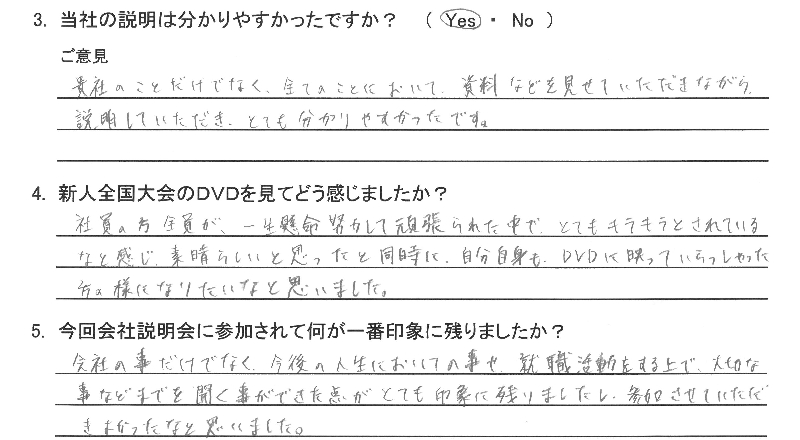 3. 当社の説明は分かりやすかったですか？ （ Yes ・ No ）
ご意見
貴社のことだけでなく、全てのことにおいて、資料などを見せていただきながら、
説明していただき、とても分かりやすかったです。
4. 新人全国大会のDVDを見てどう感じましたか？
社員の方全員が、一生懸命努力して頑張られた中で、とてもキラキラとされている
なと感じ、素晴らしいと思ったと同時に、自分自身も、DVDに映っていらっしゃった
方の様になりたいなと思いました。
5. 今回会社説明会に参加されて何が一番印象に残りましたか？
会社の事だけでなく、今後の人生においての事や、就職活動をする上で、大切な
事などまでを聞く事ができた点がとても印象に残りましたし、参加させていただ
きよかったなと思いました。